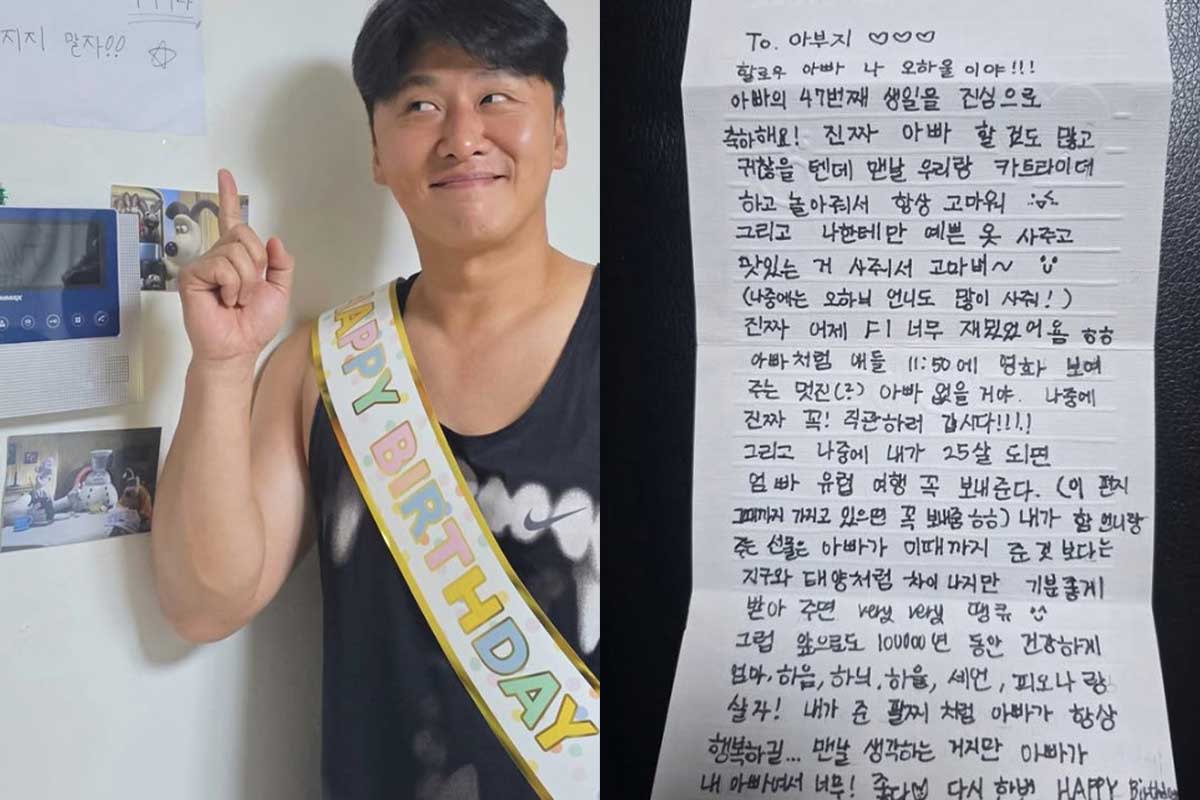 지지 말자!!
HAPPY BIRTHDAY
To. 아부지 ♡♡♡
할로우 아빠 나 오하율이야!!!
아빠의 47번째 생일을 진심으로
축하해요! 진짜 아빠 할 것도 많고
귀찮을 텐데 맨날 우리랑 카트라이더
하고 놀아줘서 항상 고마워
그리고 나한테만 예쁜 옷 사주고
맛있는 거 사줘서 고마비~
(나중에는 오하늬 언니도 많이 사줘!)
진짜 어제 F1 너무 재밌었어욤 ㅎㅎ
아빠처럼 애들 11:50에 영화 보여
주는 멋진(?) 아빠 없을 거야. 나중에
진짜 꼭! 직관하러 갑시다!!!!
그리고 나중에 내가 25살 되면
엄빠 유럽 여행 꼭 보내준다. (이 편지
그때까지 가지고 있으면 꼭 보내줌 ㅎㅎ) 내가 함 언니랑
주는 선물은 아빠가 이때까지 준 것 보다는
지구와 태양처럼 차이 나지만 기분좋게
받아 주면 very very 땡큐
그럼 앞으로도 100000년 동안 건강하게
엄마, 하음, 하늬, 하율, 세언, 피오나랑
살자! 내가 준 팔찌처럼 아빠가 항상
행복하길... 맨날 생각하는 거지만 아빠가
내 아빠여서 너무! 좋다 다시 한번 HAPPY Birthday